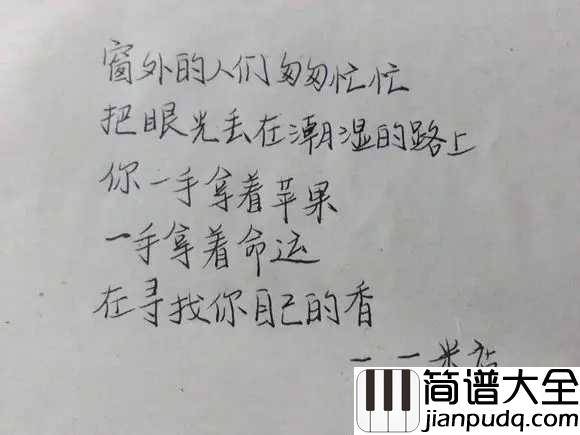 窗外的人们匆匆忙忙
把眼光丢在潮湿的路上
你一手拿着苹果
一手拿着命运
在寻找你自己的香
——米店
简谱大全
jianpudq.com